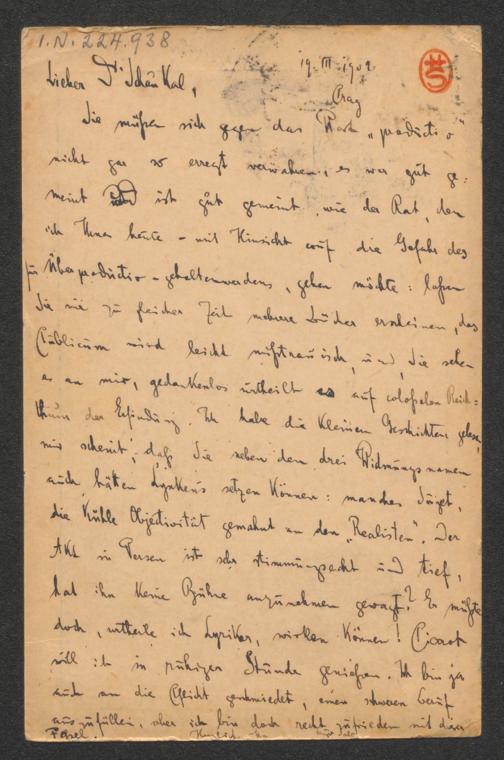 I.N. 224.938
19. III. 1902
Prag
Lieber Dr Schaukal,
Sie müßen sich gegen das Wort „productiv"
nicht gar so erregt verwahren, es war gut ge=
meint und ist gut gemeint, wie der Rat, den
ich Ihnen heute – mit Hinsicht auf die Gefahr des
für Überproductiv-gehaltenwerdens, geben möchte: laßen
Sie nie zu gleicher Zeit mehrere Bücher erscheinen, das
Publicum wird leicht mißtrauisch, und, Sie sehen
es an mir, gedankenlos urtheilt es auf coloßalen Reich=
thum der Erfindung. Ich habe die kleinen Geschichten gelesen,
mir scheint, daß Sie neben den drei Widmungsnamen
auch hätten Lynkeus setzen können: manches Sujet,
die kühle Objectivität gemahnt an den „Realisten". Der
Akt in Versen ist sehr stimmungsecht und tief,
hat ihn keine Bühne anzunehmen gewagt? Er müßte
doch, urtheile ich Lyriker, wirken können! Pierrot
will ich in ruhiger Stunde genießen. Ich bin ja
auch an die Pflicht geschmiedet, einen schweren Beruf
auszufüllen, aber ich bin doch recht zufrieden mit dieser
Feßel.